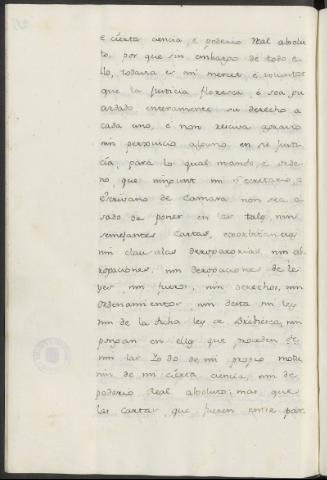 è cierta ciencia, è poderio Real absolu-
to, por que sin embargo de todo e-
llo, todavia es mi merced è voluntad
que la Justicia florezca è sea gu-
ardado enteramente su derecho a
cada uno, è non resciva agravio
nin perjuicio alguno en su justi-
cia, para lo qual mando è orde-
no, que ningunt mi Secretario, o
Escrivano de Camara non sea o-
sado de poner en las tales, nin
semejantes cartas, exorbitancias
nin clausulas derogatorias, nin ab-
rogaciones, nin derogaciones de le-
yes nin fueros, nin derechos, nin
ordenamientos, nin desta mi ley
nin de la dicha ley de Bribiesca, nin
pongan en ellas que proceden
nin las Yo do de mi propio motu
nin de mi cierta ciencia, nin de
poderio Real absoluto; mas que
las cartas, que fueren entre par-